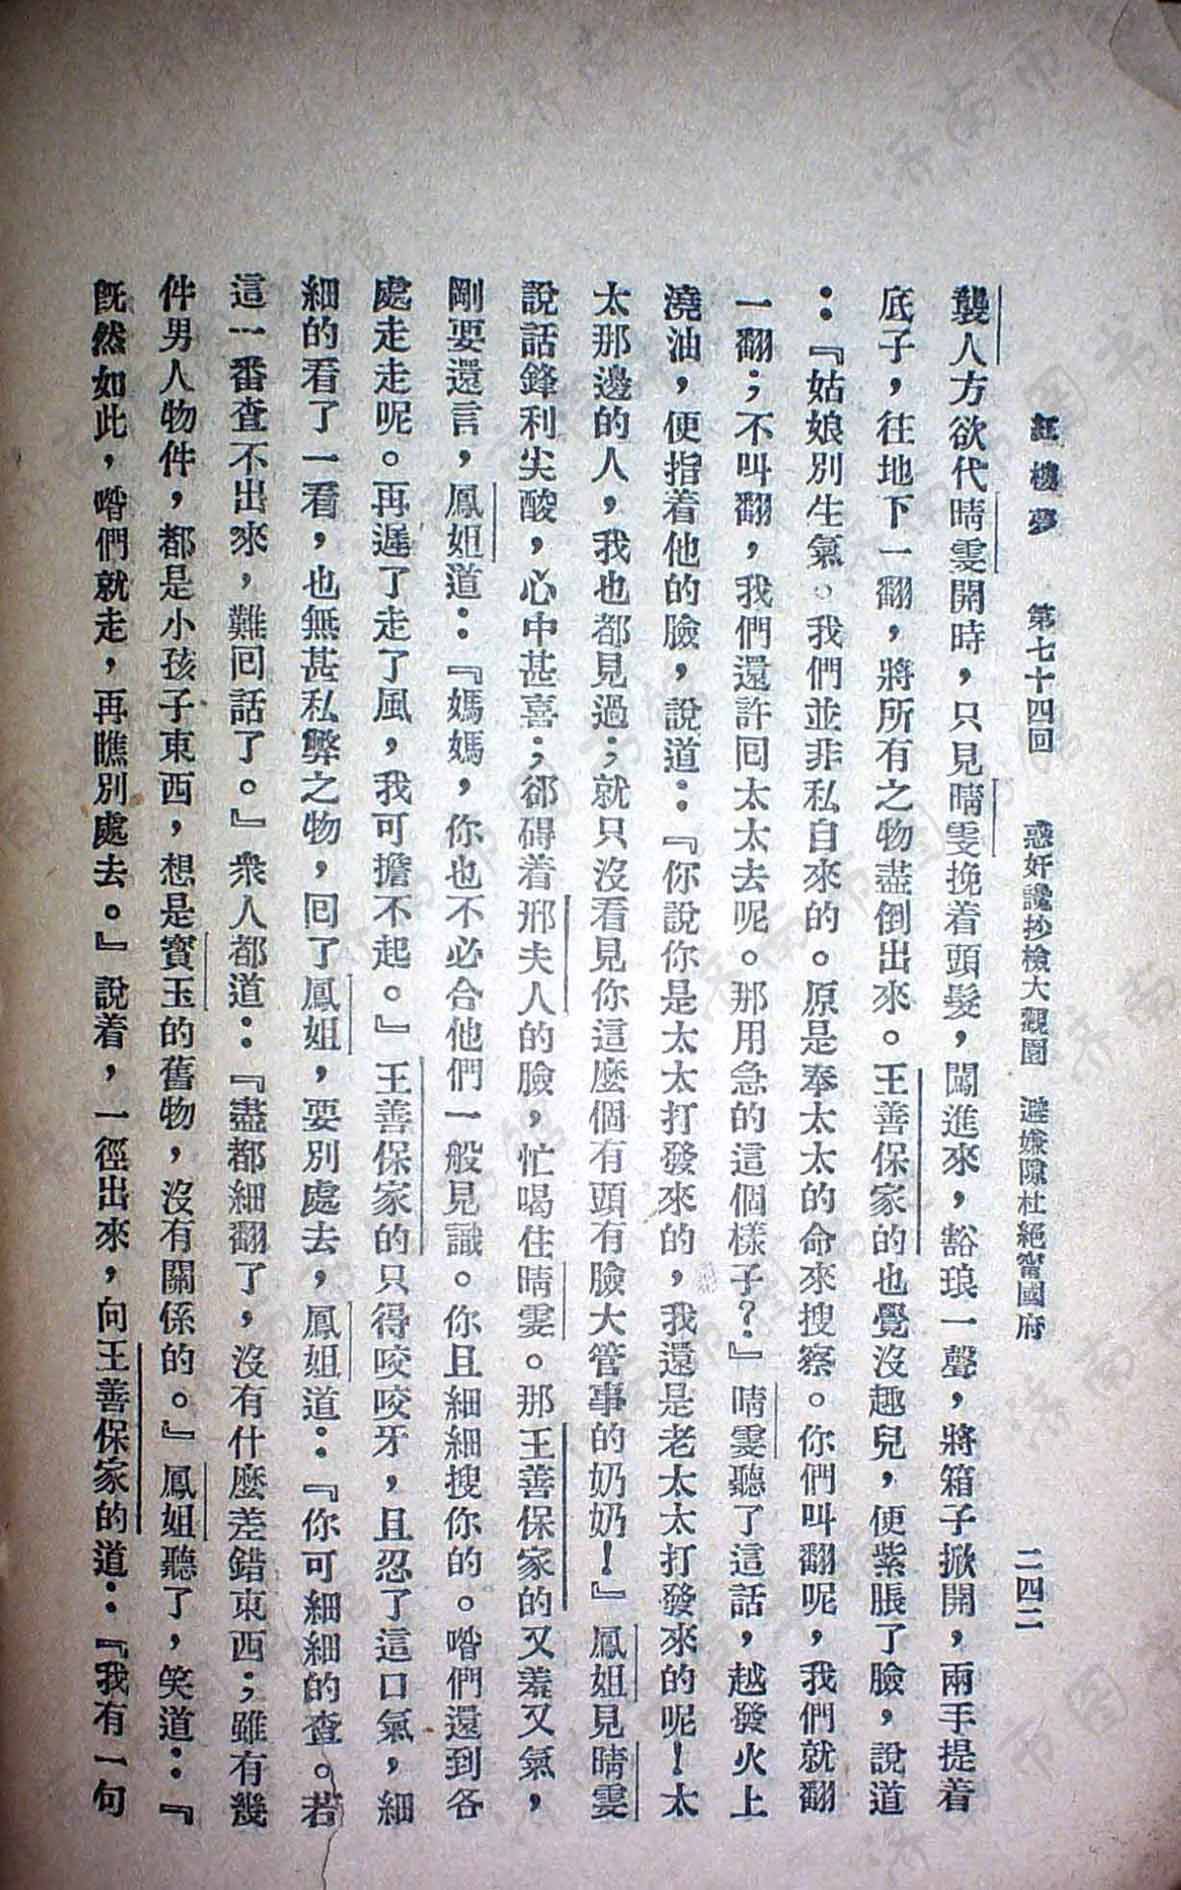 紅樓夢　第七十四回　惑奸讒抄檢大觀園　避嫌隙杜絕甯國府　二四二
襲人方欲代晴雯開時，只見晴雯挽着頭髮，闖進來，豁琅一聲，將箱子掀開，兩手提着
底子，往地下一翻，將所有之物盡倒出來。王善保家的也覺沒趣兒，便紫脹了臉，說道
：『姑娘別生氣。我們並非私自來的。原是奉太太的命來搜察。你們叫翻呢，我們就翻
一翻；不叫翻，我們還許回太太去呢。那用急的這個樣子？』晴雯聽了這話，越發火上
澆油，便指着他的臉，說道：『你說你是太太打發來的，我還是老太太打發來的呢！太
太那邊的人，我也都見過；就只沒看見你這麼個有頭有臉大管事的奶奶！』鳳姐見晴雯
說話鋒利尖酸，心中甚喜；卻碍着邢夫人的臉，忙喝住晴雯。那王善保家的又羞又氣，
剛要還言，鳳姐道：『媽媽，你也不必合他們一般見識。你且細細搜你的。喒們還到各
處走走呢。再遲了走了風，我可擔不起。』王善保家的只得咬咬牙，且忍了這口氣，細
細的看了一看，也無甚私弊之物，回了鳳姐，要別處去，鳳姐道：『你可細細的查。若
這一番查不出來，難回話了。』衆人都道：『盡都細翻了，沒有什麼差錯東西；雖有幾
件男人物件，都是小孩子東西，想是寶玉的舊物，沒有關係的。』鳳姐聽了，笑道：『
旣然如此，喒們就走，再瞧別處去。』說着，一徑出來，向王善保家的道：『我有一句